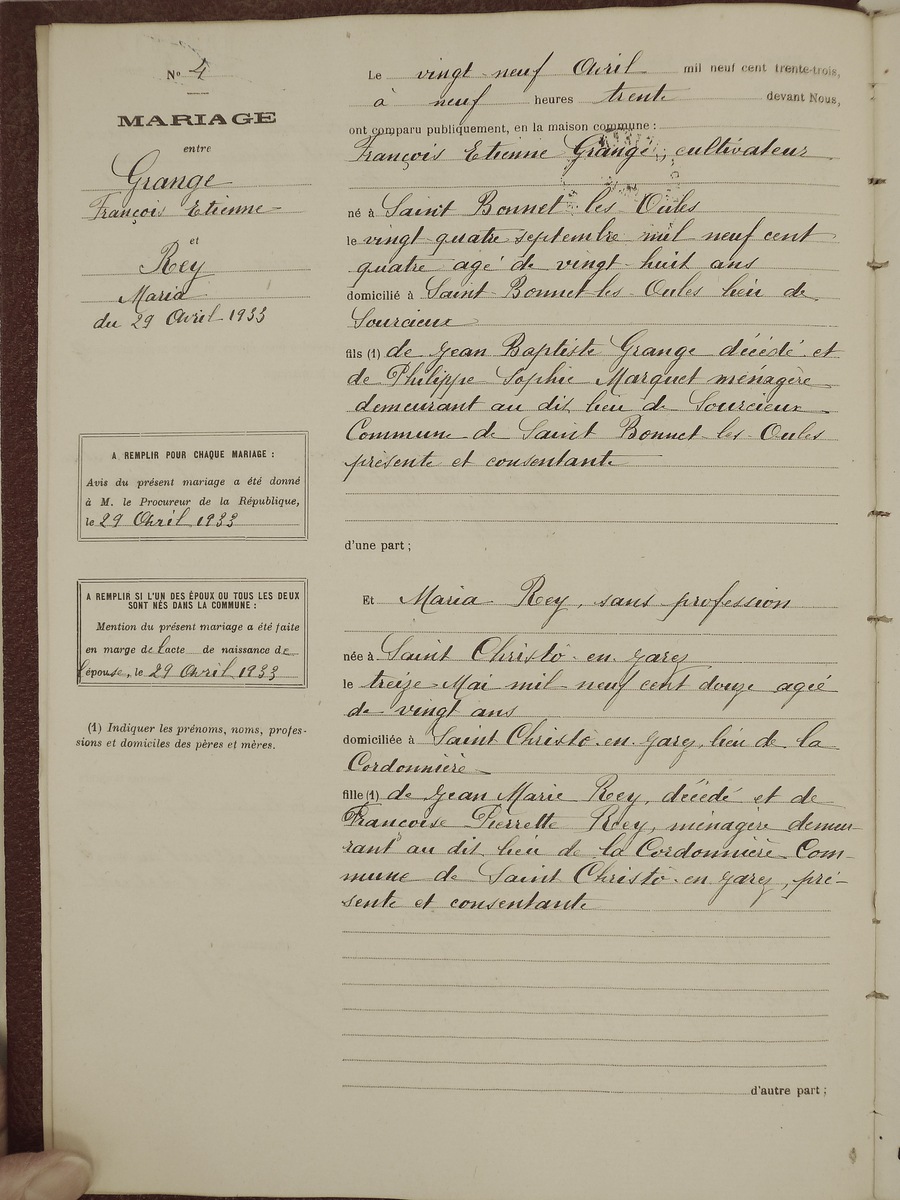 N° 4
MARIAGE
entre
Grange
François Etienne
et
Rey
Maria
du 29 Avril 1933
A REMPLIR POUR CHAQUE MARIAGE :
Avis du présent mariage a été donné
à M. le Procureur de la République,
le 29 Avril 1933
A REMPLIR SI L'UN DES ÉPOUX OU TOUS LES DEUX
SONT NÉS DANS LA COMMUNE :
Mention du présent mariage a été faite
en marge de l'acte de naissance de
l'épouse, le 29 Avril 1933
(1) Indiquer les prénoms, noms, profes-
sions et domiciles des pères et mères.
Le vingt-neuf Avril mil neuf cent trente-trois,
à neuf heures trente devant Nous,
ont comparu publiquement, en la maison commune :
François Etienne Grange, cultivateur
né à Saint Bonnet-les-Oules
le vingt-quatre septembre mil neuf cent
quatre agé de vingt-huit ans
domicilié à Saint-Bonnet-les-Oules lieu de
Sourcieux
fils (1) de Jean Baptiste Grange décédé et
de Philippe Sophie Marquet ménagère
demeurant au dit lieu de Sourcieux
Commune de Saint Bonnet-les-Oules
présente et consentante
d'une part ;
Et Maria Rey, sans profession
née à Saint Christô-en-Jarez
le treize Mai mil neuf cent douze agée
de vingt ans
domiciliée à Saint Christô-en-Jarez, lieu de la
Cordonnière
fille (1) de Jean Marie Rey, décédé et de
Françoise Pierrette Rey, ménagère demeu-
rant au dit lieu de la Cordonnière Com-
mune de Saint Christô-en-Jarez, pré-
sente et consentante
d'autre part ;